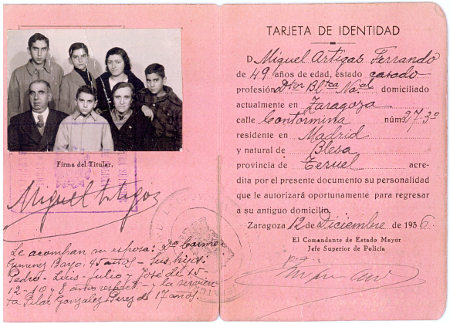 Firma del Titular.
Miguel Artigas
Le acompañan su esposa: Dª Carmen
Gimenez Bayo. 45 años - Sus hijos:
Pedro - Luis - Julio y José de 15 -
12 - 10 y 8 años respect. y la sirvien-
ta Pilar Gonzalez Perez de 17 años.
TARJETA DE IDENTIDAD
D. Miguel Artigas Ferrando
de 49 años de edad, estado casado
profesión Dtor Bltca Nal domiciliado
actualmente en Zaragoza
calle núm. 27-3º
residente en Madrid
y natural de Blesa
provincia de Teruel acre-
dita por el presente documento su personalidad
que le autorizará oportunamente para regresar
a su antiguo domicilio.
Zaragoza 12 de Diciembre de 1936.
El Comandante de Estado Mayor
Jefe Superior de Policía